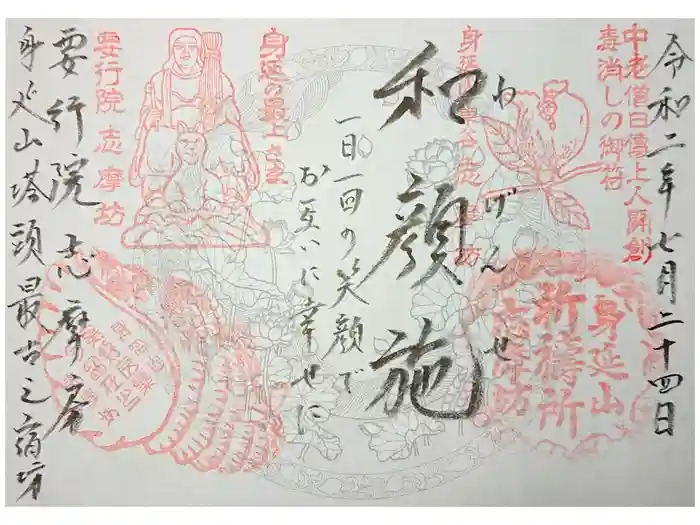 令和二年七月二十四日
中老僧日傳上人開創
毒消しの御符
身延山
祈禱所
志摩坊
わげんせ
和顔施
一日一回の笑顔で
お互いに幸せに
身延の最上さま
要行院 志摩坊
要行院 志摩房
身延山塔頭最古之宿坊